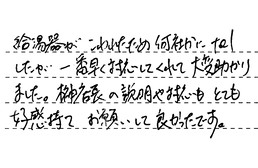 給湯器がこわれたため何社かにTEL
したが一番早く対応してくれて大変助かり
ました。榊店長の説明や対応もとても
好感持てお願いして良かったです。